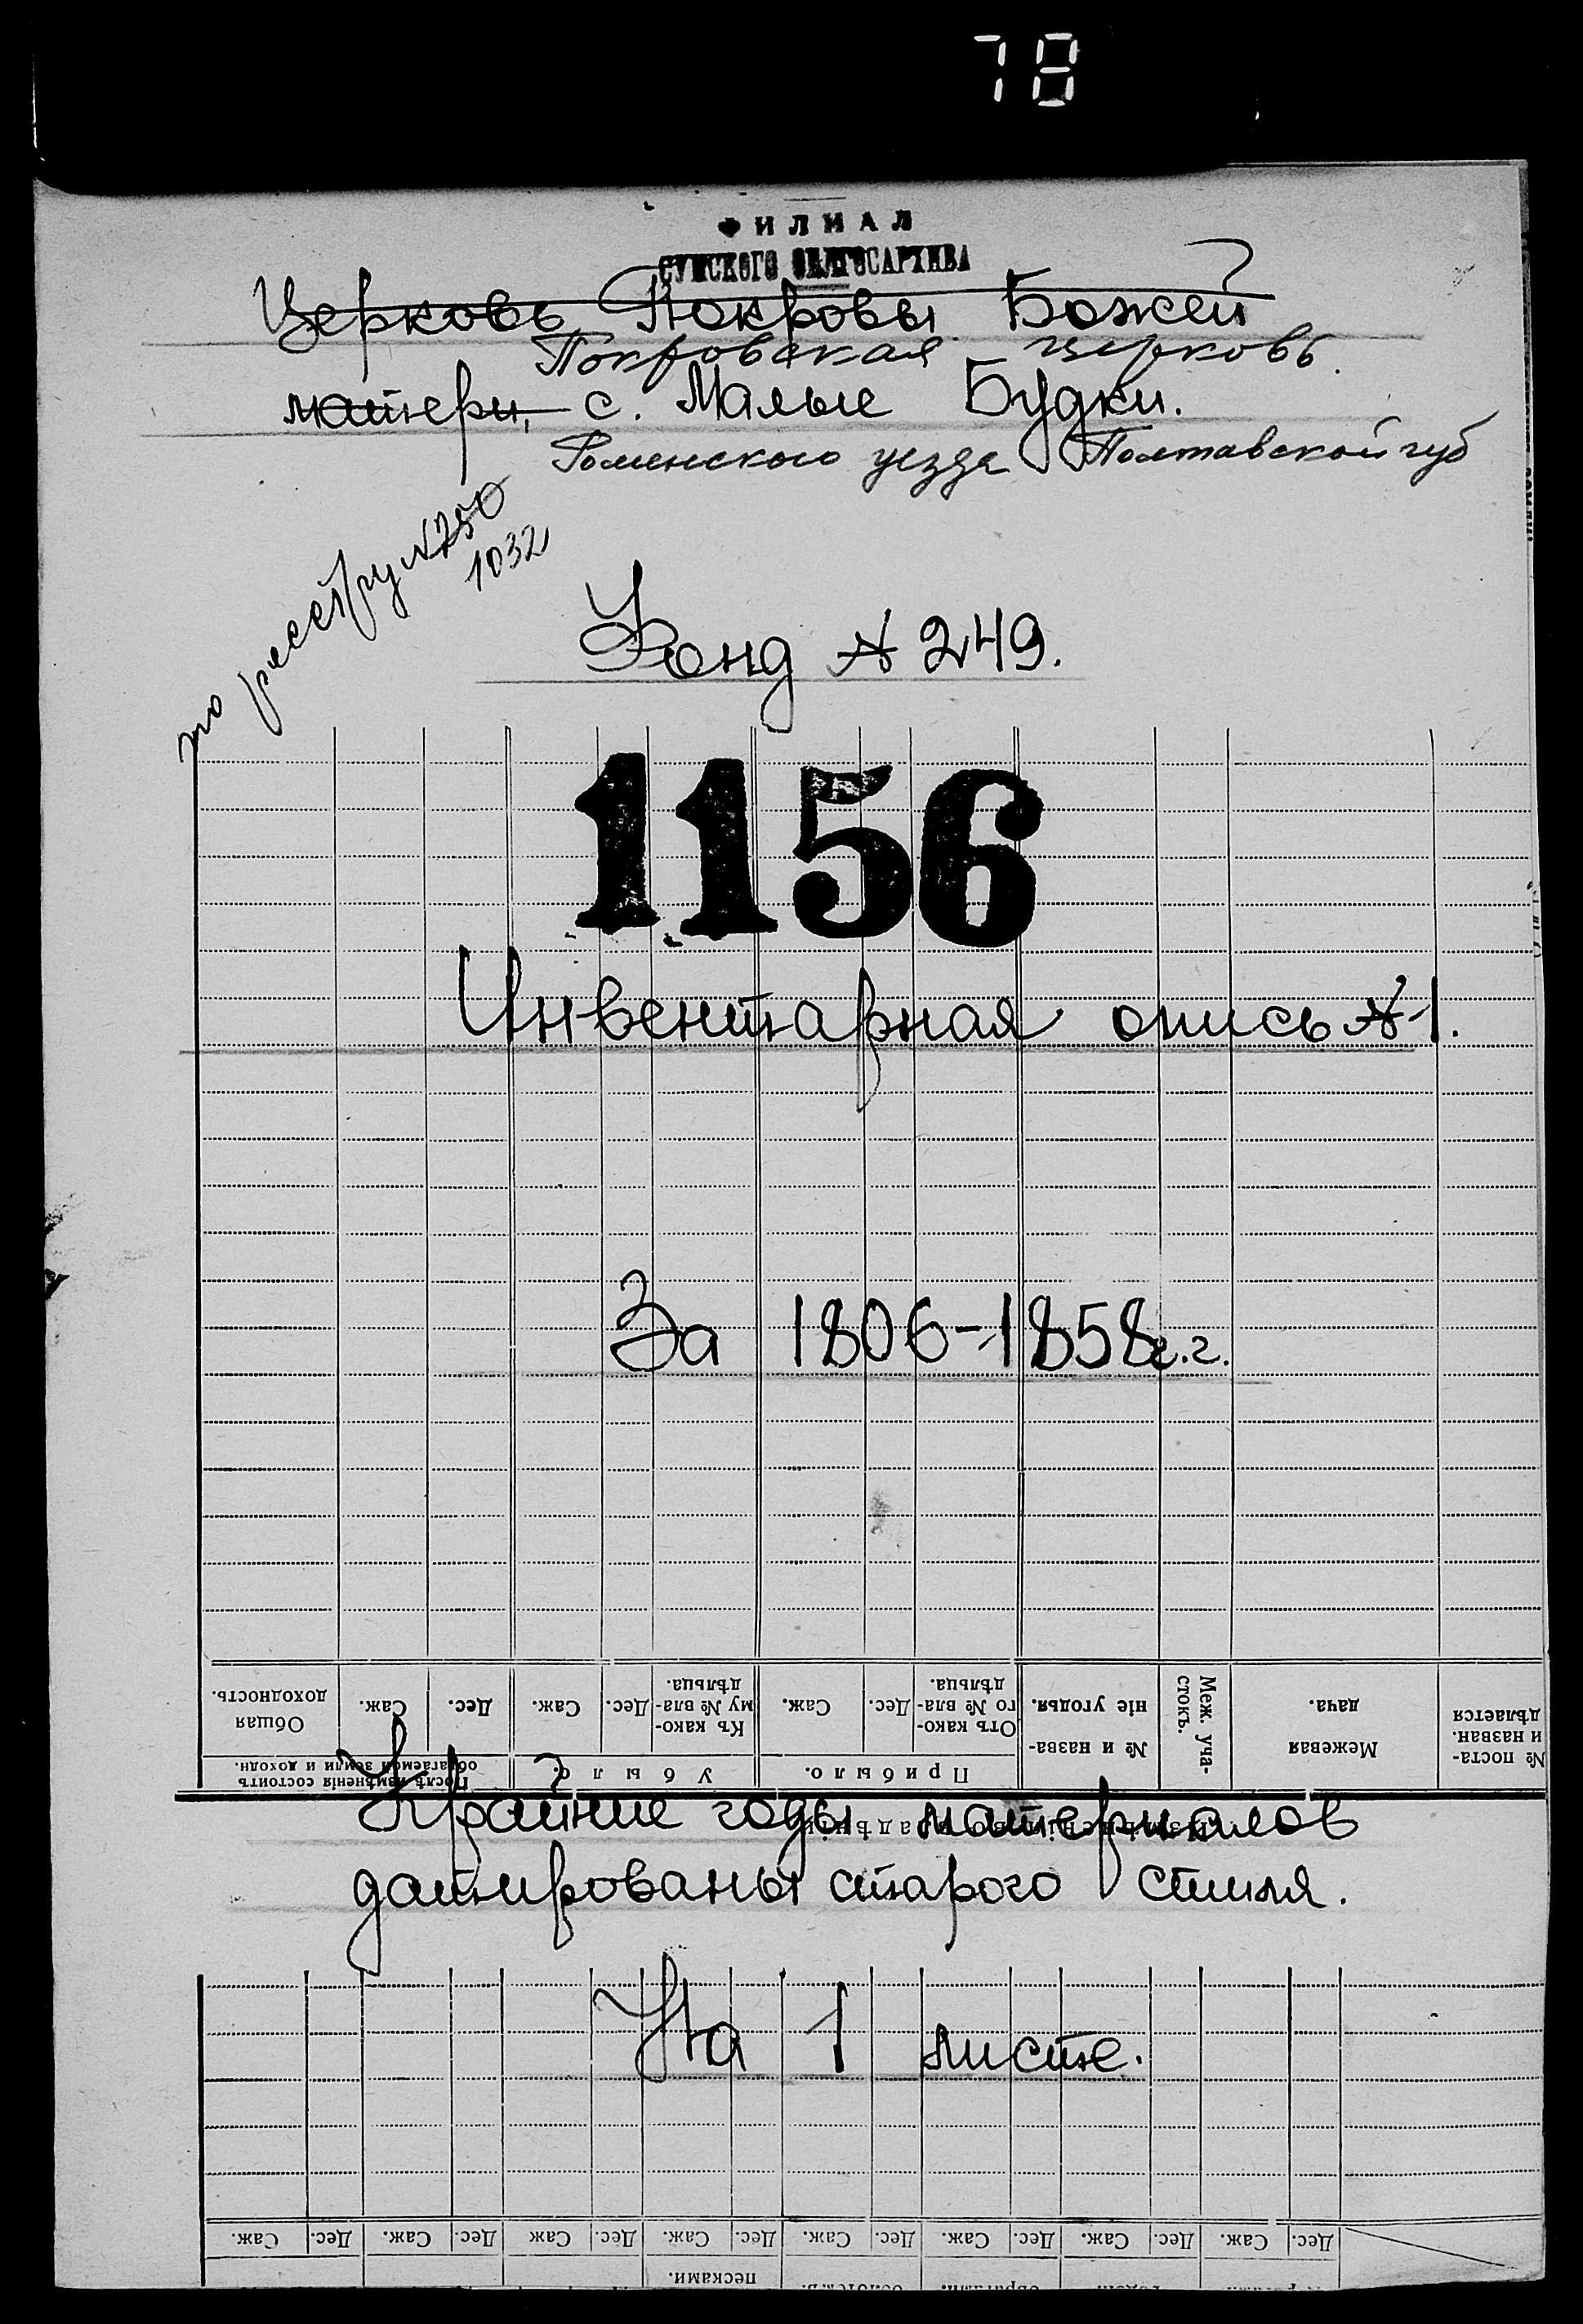 78
ФИЛИАЛ
СУМСКОГО ОБЛГОСАРХИВА
Церковь Покровы Божей
Покровская церковь
матери, с. Малые Будки.
Роменского уезда Полтавской губ
по реестру №250
1032
Фонд № 249.
1156
Инвентарная опись № 1.
За 1806-1858 г.г.
Общая доходность.
Саж.
Дес.
Саж.
Дес.
Къ како-му № вла-дѣльца.
Саж.
Дес.
Отъ како-го № вла-дѣльца.
№ и назва-ніе угодья.
Меж. уча-стокъ.
Межевая дача.
№ поста-
и назван.
дѣлается
Послѣ измѣненія состоитъ
облагаемой земли и доходн.
Убыло.
Прибыло.
Крайние годы материалов
датированы старого стиля.
На 1 листе.
Саж.
Дес.
Саж.
Дес.
Саж
Дес.
Саж.
Дес.
Саж.
Дес.
Саж.
Дес.
Саж.
Дес.
Саж.
Дес.
песками.